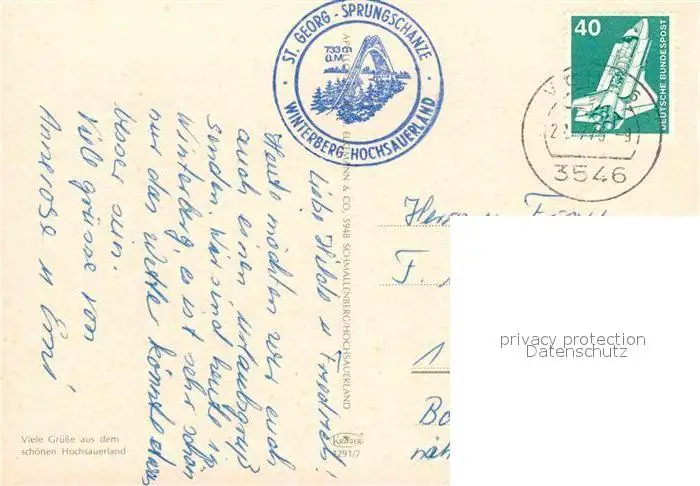 ST. GEORG - SPRUNGSCHANZE
733 m
ü.M.
WINTERBERG/HOCHSAUERLAND
40
DEUTSCHE BUNDESPOST
3546
Liebe Hilde u Friedrich!
Heute möchten wir euch
auch einen Urlaubsgruß
senden. Wir sind heute in
Winterberg, es ist sehr schön
nur das Wetter könnte etwas
besser sein.
Viele grüsse von
Annerose u Erni!
Herrn u Frau
F.
1
Bo
näh
& CO, 5948 SCHMALLENBERG/HOCHSAUERLAND
KRÜGER
1291/7
Viele Grüße aus dem
schönen Hochsauerland
privacy protection
Datenschutz